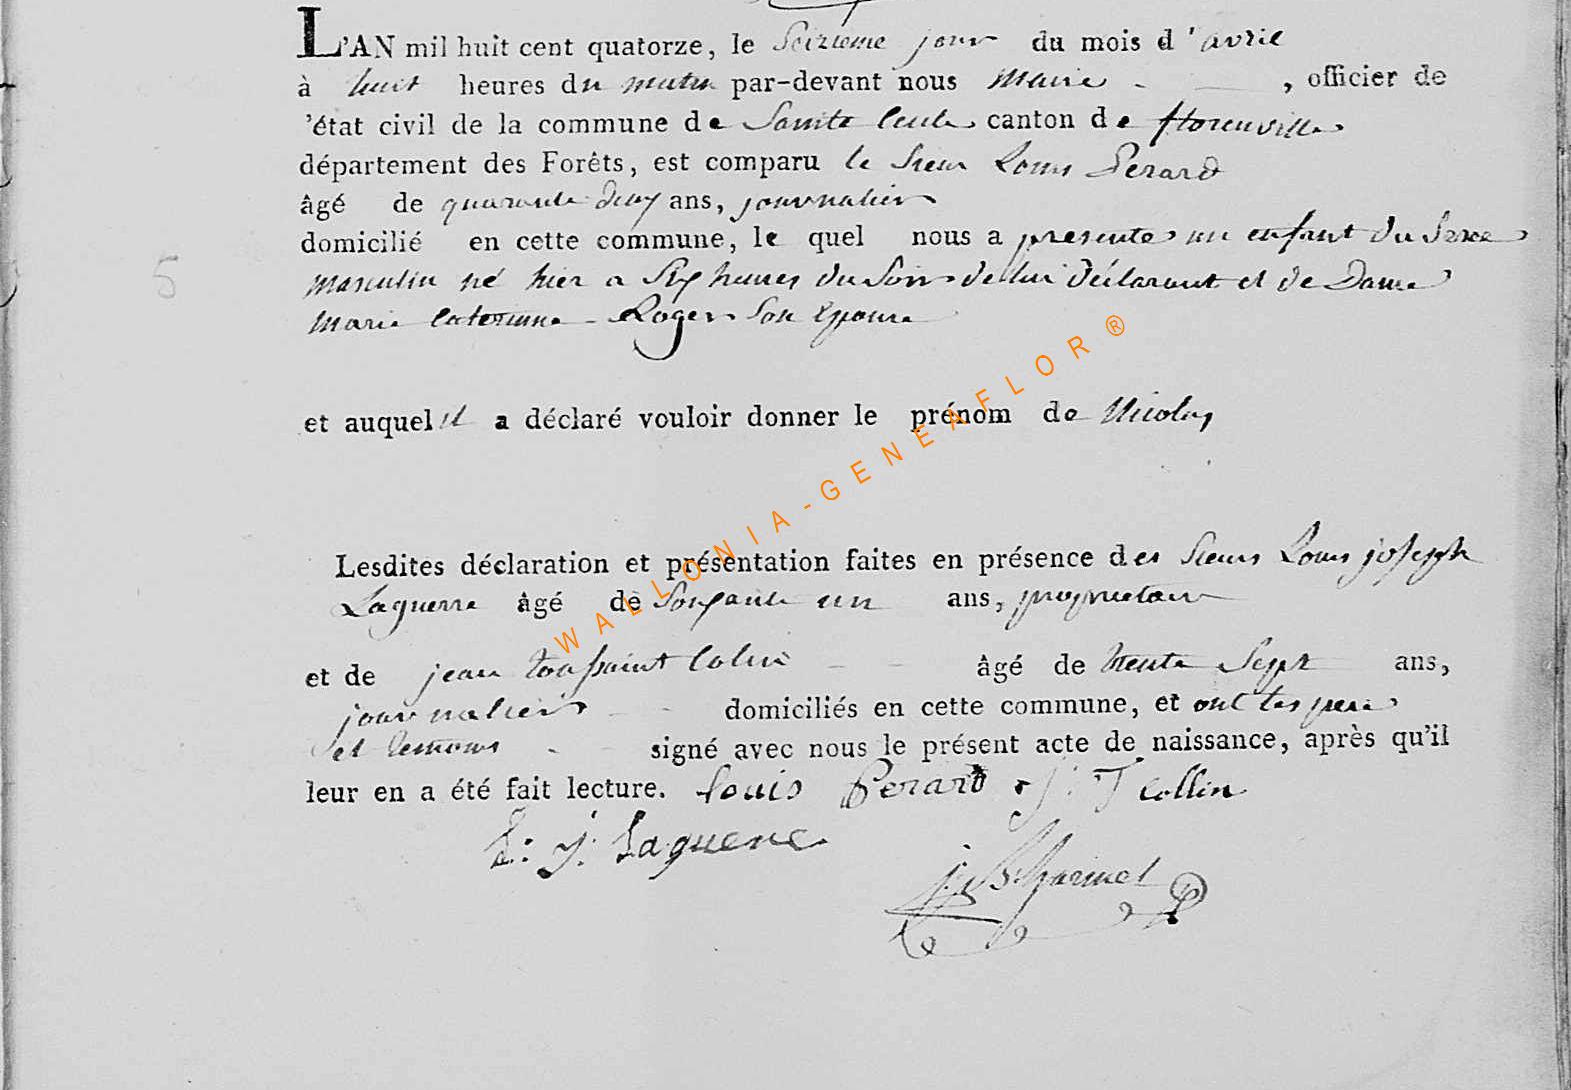 L'AN mil huit cent quatorze, le Seizieme jour du mois d'avril
à huit heures du matin par-devant nous Maire , officier de
'état civil de la commune de Sainte Cecile canton de florenville
département des Forêts, est comparu le Sieur Louis Perard
âgé de quarante deux ans, journalier
domicilié en cette commune, le quel nous a presenté un enfant du Sexe
masculin né hier a Six heures du Soir de lui déclarant et de Dame
Marie Roger Son Epouse
et auquel il a déclaré vouloir donner le prénom de Nicolas
Lesdites déclaration et présentation faites en présence des Sieurs Louis joseph
Laguerre âgé de Soixante un ans, proprietaire
et de jean toussaint Colin âgé de trente Sept ans,
journalier domiciliés en cette commune, et ont les pere
et temoins signé avec nous le présent acte de naissance, après qu'il
leur en a été fait lecture. Louis Perard J: T Collin
L: J: Laguerre
WALLONIA-GENEAFLOR®
5